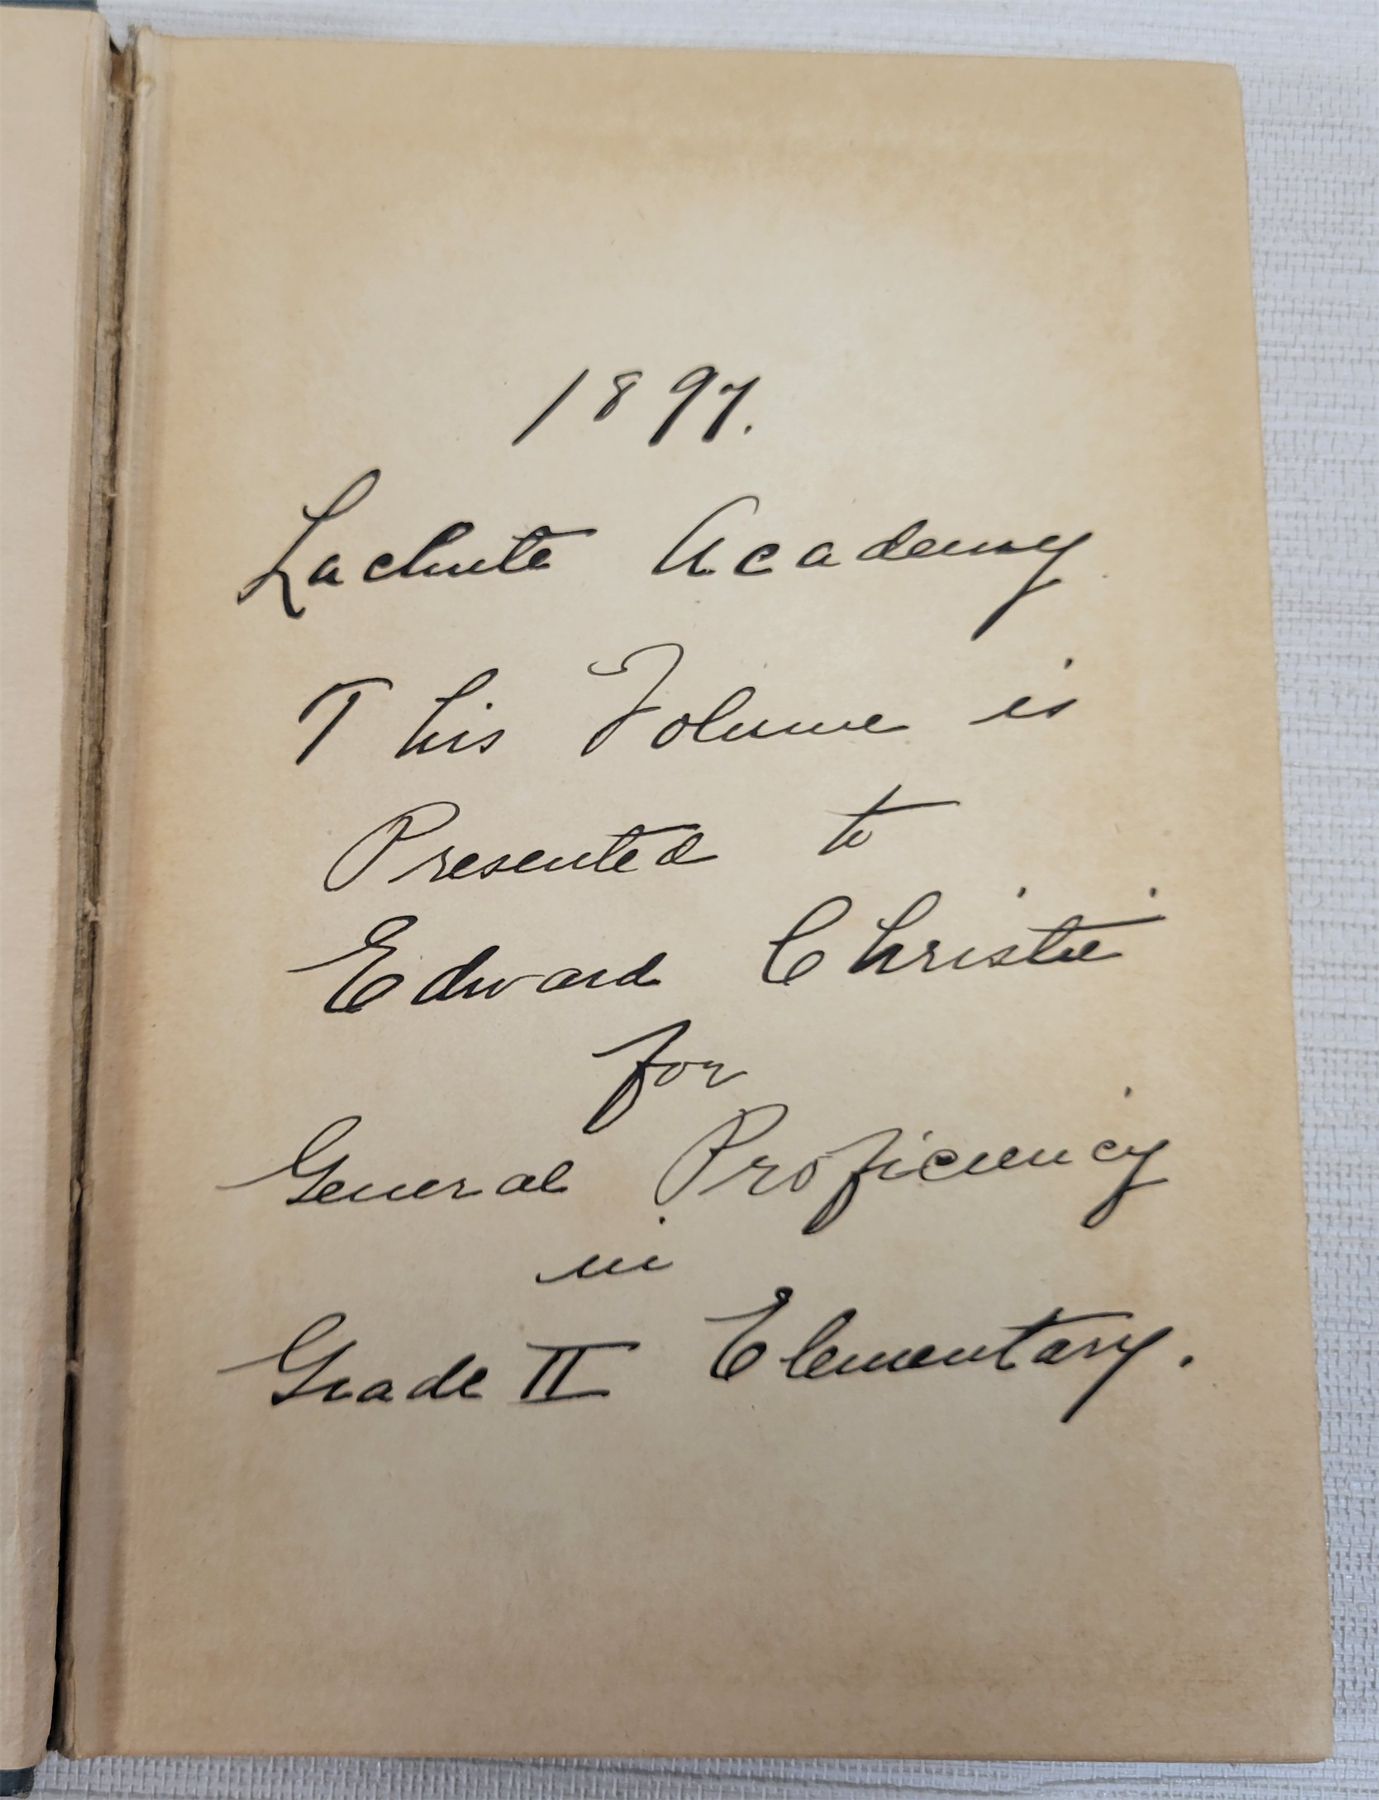 1897.
Lachute Academy
This Volume is
Presented to
Edward Christie
for
General Proficiency
in
Grade II Elementary.